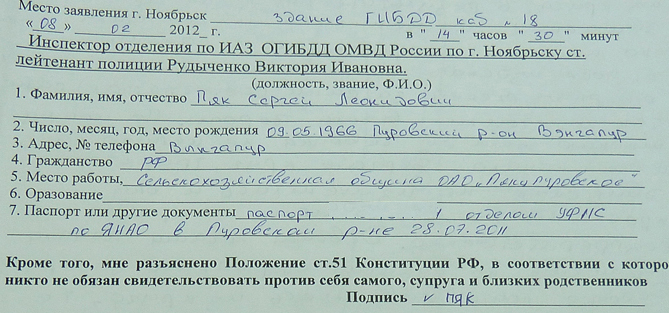 Место заявления г. Ноябрьск здание ГИБДД каб № 18
« 08 » 02 2012_ г. в " 14 " часов " 30 " минут
Инспектор отделения по ИАЗ ОГИБДД ОМВД России по г. Ноябрьску ст.
лейтенант полиции Рудыченко Виктория Ивановна.
(должность, звание, Ф.И.О.)
1. Фамилия, имя, отчество Пяк Сергей Леонидович
2. Число, месяц, год, место рождения 09.05.1966 Пуровский р-он Вэнгапур
3. Адрес, № телефона Вынгапур
4. Гражданство РФ
5. Место работы, Сельскохозяйственная община ОАО „Пяку Пуровское"
6. Оразование
7. Паспорт или другие документы паспорт отделом УФМС
по ЯНАО в Пуровском р-не 28.07.2011
Кроме того, мне разъяснено Положение ст.51 Конституции РФ, в соответствии с которо
никто не обязан свидетельствовать против себя самого, супруга и близких родственников
Подпись v ПЯК